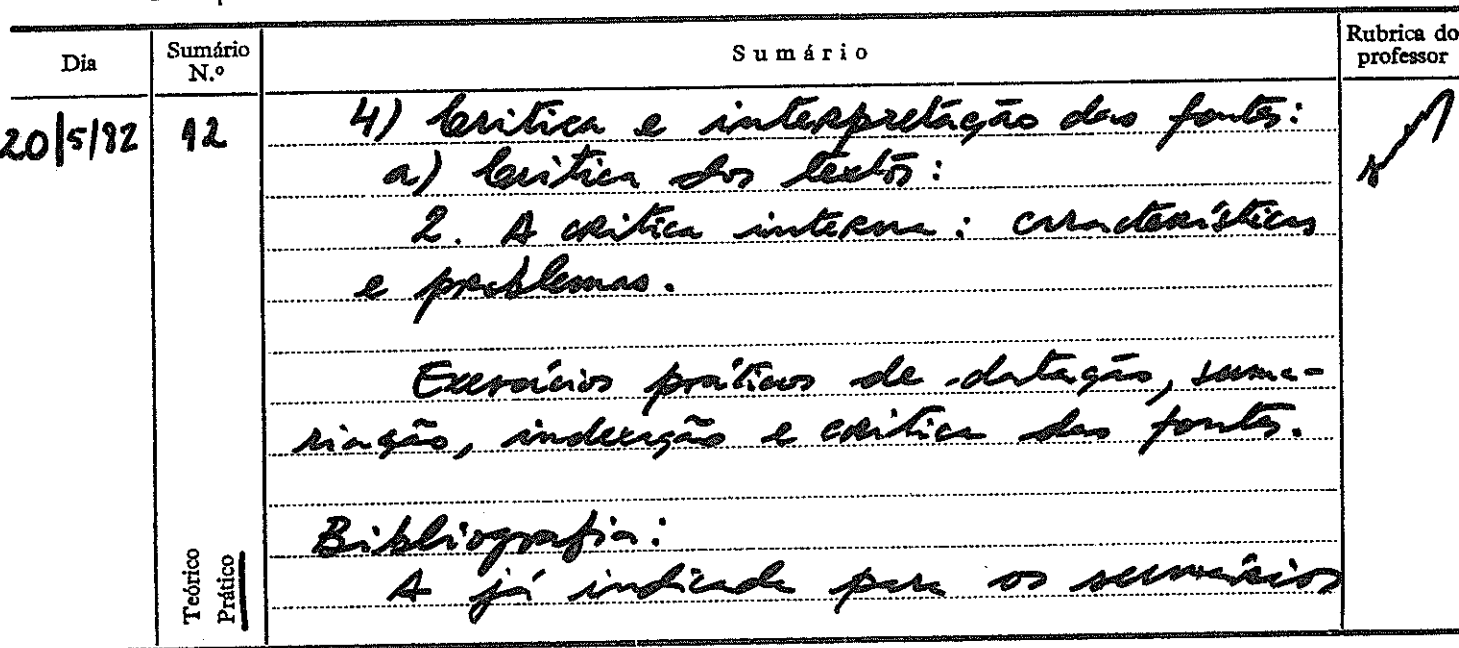 Dia
Sumário N.º
Sumário
Rubrica do professor
20/5/82
12
4) Crítica e interpretação das fontes:
a) Crítica dos textos:
2. A crítica interna: características
e problemas.
Exercícios práticos de datação, suma-
riação, indexação e crítica das fontes.
Bibliografia:
A já indicada para os sumários
Teórico
Prático